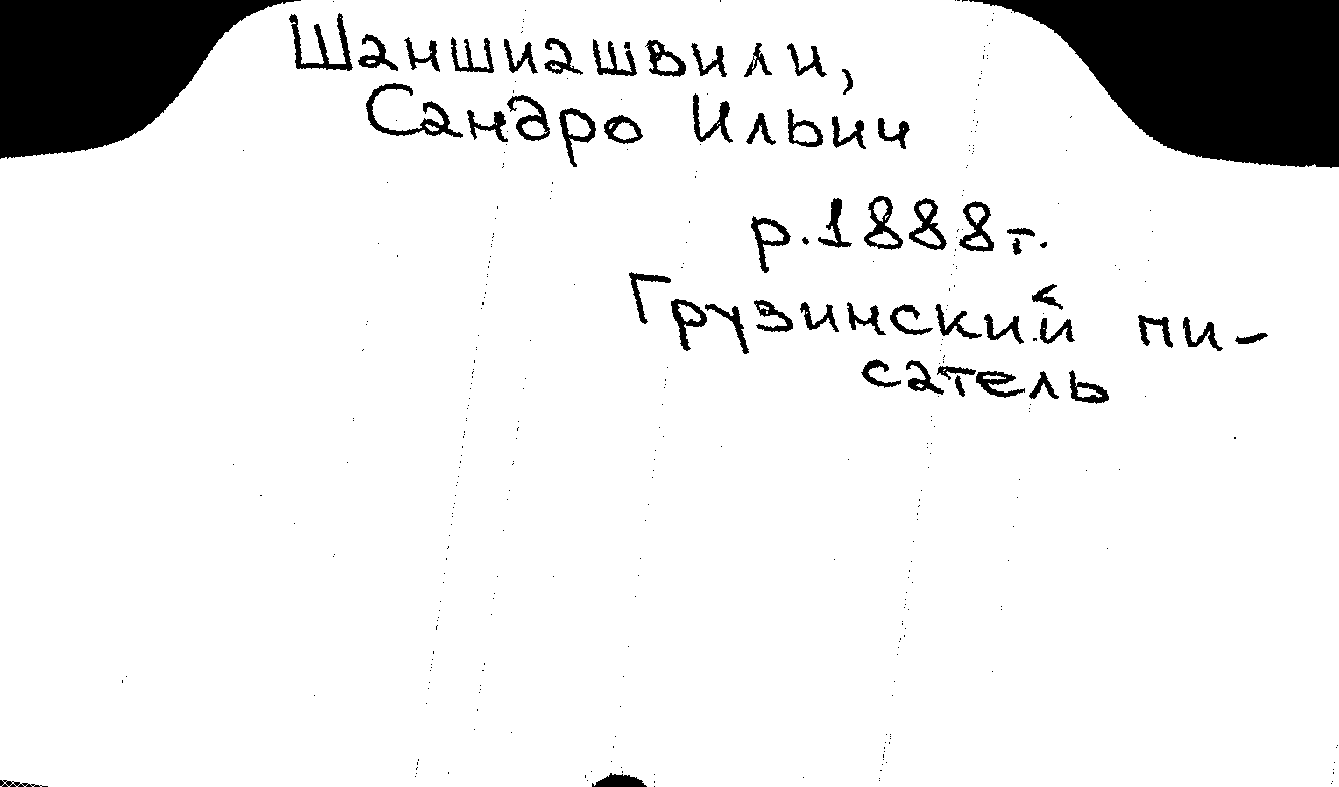 Шаншиашвили,
Сандро Ильич
р. 1888 г.
Грузинский пи-
сатель